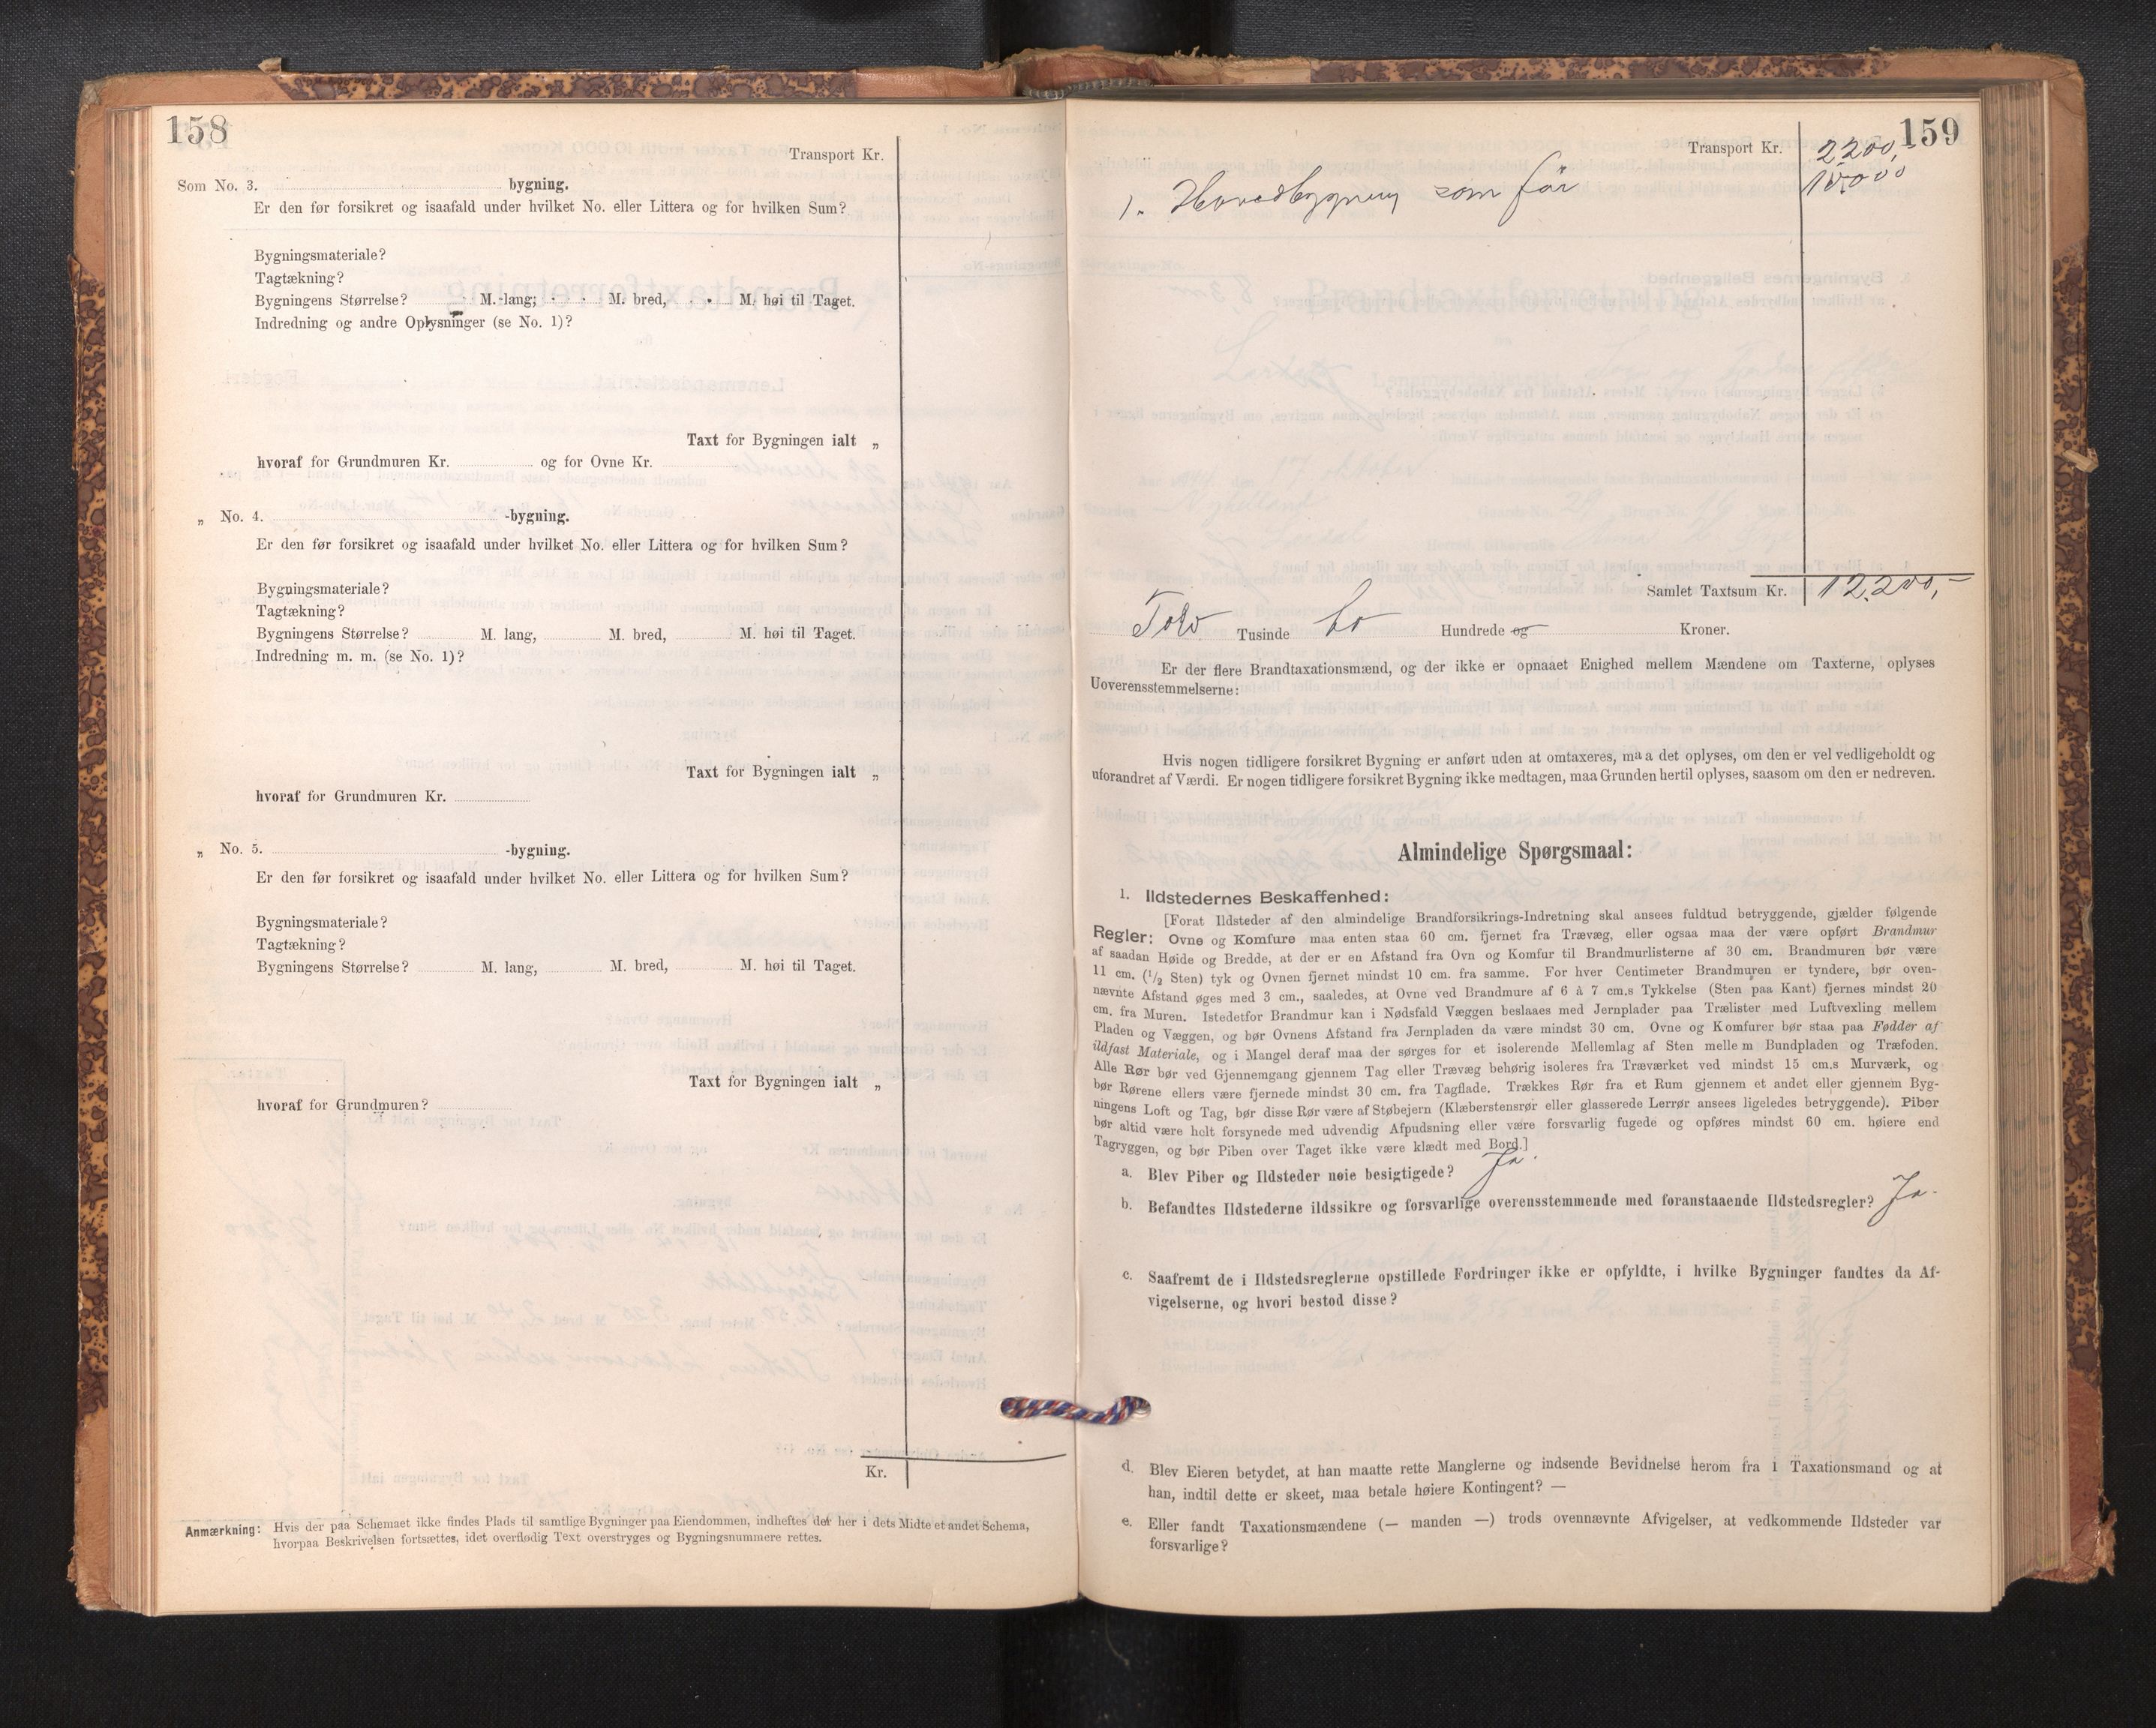 158
Transport Kr.
Som No. 3. bygning.
Er den før forsikret og isaafald under hvilket No. eller Littera og for hvilken Sum?
Bygningsmateriale?
Tagtækning?
Bygningens Størrelse? M. lang; M. bred, M. høi til Taget.
Indredning og andre Oplysninger (se No. 1)?
Taxt for Bygningen ialt „
hvoraf for Grundmuren Kr. og for Ovne Kr.
„ No. 4. -bygning.
Er den før forsikret og isaafald under hvilket No. eller Littera og for hvilken Sum?
Bygningsmateriale?
Tagtækning?
Bygningens Størrelse? M. lang, M. bred, M. høi til Taget.
Indredning m. m. (se No. 1)?
Taxt for Bygningen ialt „
hvoraf for Grundmuren Kr.
„ No. 5. -bygning.
Er den før forsikret og isaafald under hvilket No. eller Littera og for hvilken Sum?
Bygningsmateriale?
Tagtækning?
Bygningens Størrelse? M. lang, M. bred, M. høi til Taget.
Taxt for Bygningen ialt „
hvoraf for Grundmuren?
Kr.
Anmærkning: Hvis der paa Schemaet ikke findes Plads til samtlige Bygninger paa Eiendommen, indheftes der her i dets Midte et andet Schema,
hvorpaa Beskrivelsen fortsættes, idet overflødig Text overstryges og Bygningsnummere rettes.
159
Transport Kr. 2200,-
1. Hovedbygning som før 10.000
Samlet Taxtsum Kr. 12.200,-
Tolv Tusinde to Hundrede og Kroner.
Er der flere Brandtaxationsmænd, og der ikke er opnaaet Enighed mellem Mændene om Taxterne, oplyses
Uoverensstemmelserne:
Hvis nogen tidligere forsikret Bygning er anført uden at omtaxeres, maa det oplyses, om den er vel vedligeholdt og
uforandret af Værdi. Er nogen tidligere forsikret Bygning ikke medtagen, maa Grunden hertil oplyses, saasom om den er nedreven.
Almindelige Spørgsmaal:
1. Ildstedernes Beskaffenhed:
[Forat Ildsteder af den almindelige Brandforsikrings-Indretning skal ansees fuldtud betryggende, gjælder følgende
Regler: Ovne og Komfure maa enten staa 60 cm. fjernet fra Trævæg, eller ogsaa maa der være opført Brandmur
af saadan Høide og Bredde, at der er en Afstand fra Ovn og Komfur til Brandmurlisterne af 30 cm. Brandmuren bør være
11 cm. (1/2 Sten) tyk og Ovnen fjernet mindst 10 cm. fra samme. For hver Centimeter Brandmuren er tyndere, bør oven-
nævnte Afstand øges med 3 cm., saaledes, at Ovne ved Brandmure af 6 à 7 cm.s Tykkelse (Sten paa Kant) fjernes mindst 20
cm. fra Muren. Istedetfor Brandmur kan i Nødsfald Væggen beslaaes med Jernplader paa Trælister med Luftvexling mellem
Pladen og Væggen, og bør Ovnens Afstand fra Jernpladen da være mindst 30 cm. Ovne og Komfurer bør staa paa Fødder af
ildfast Materiale, og i Mangel deraf maa der sørges for et isolerende Mellemlag af Sten mellem Bundpladen og Træfoden.
Alle Rør bør ved Gjennemgang gjennem Tag eller Trævæg behørig isoleres fra Træværket ved mindst 15 cm.s Murværk, og
bør Rørene ellers være fjernede mindst 30 cm. fra Tagflade. Trækkes Rør fra et Rum gjennem et andet eller gjennem Byg-
ningens Loft og Tag, bør disse Rør være af Støbejern (Klæberstensrør eller glasserede Lerrør ansees ligeledes betryggende). Piber
bør altid være helt forsynede med udvendig Afpudsning eller være forsvarlig fugede og opføres mindst 60 cm. høiere end
Tagryggen, og bør Piben over Taget ikke være klædt med Bord.]
a. Blev Piber og Ildsteder nøie besigtigede? Ja.
b. Befandtes Ildstederne ildssikre og forsvarlige overensstemmende med foranstaaende Ildstedsregler? Ja.
c. Saafremt de i Ildstedsreglerne opstillede Fordringer ikke er opfyldte, i hvilke Bygninger fandtes da Af-
vigelserne, og hvori bestod disse?
d. Blev Eieren betydet, at han maatte rette Manglerne og indsende Bevidnelse herom fra 1 Taxationsmand og at
han, indtil dette er skeet, maa betale høiere Kontingent? —
e. Eller fandt Taxationsmændene (— manden —) trods ovennævnte Afvigelser, at vedkommende Ildsteder var
forsvarlige?